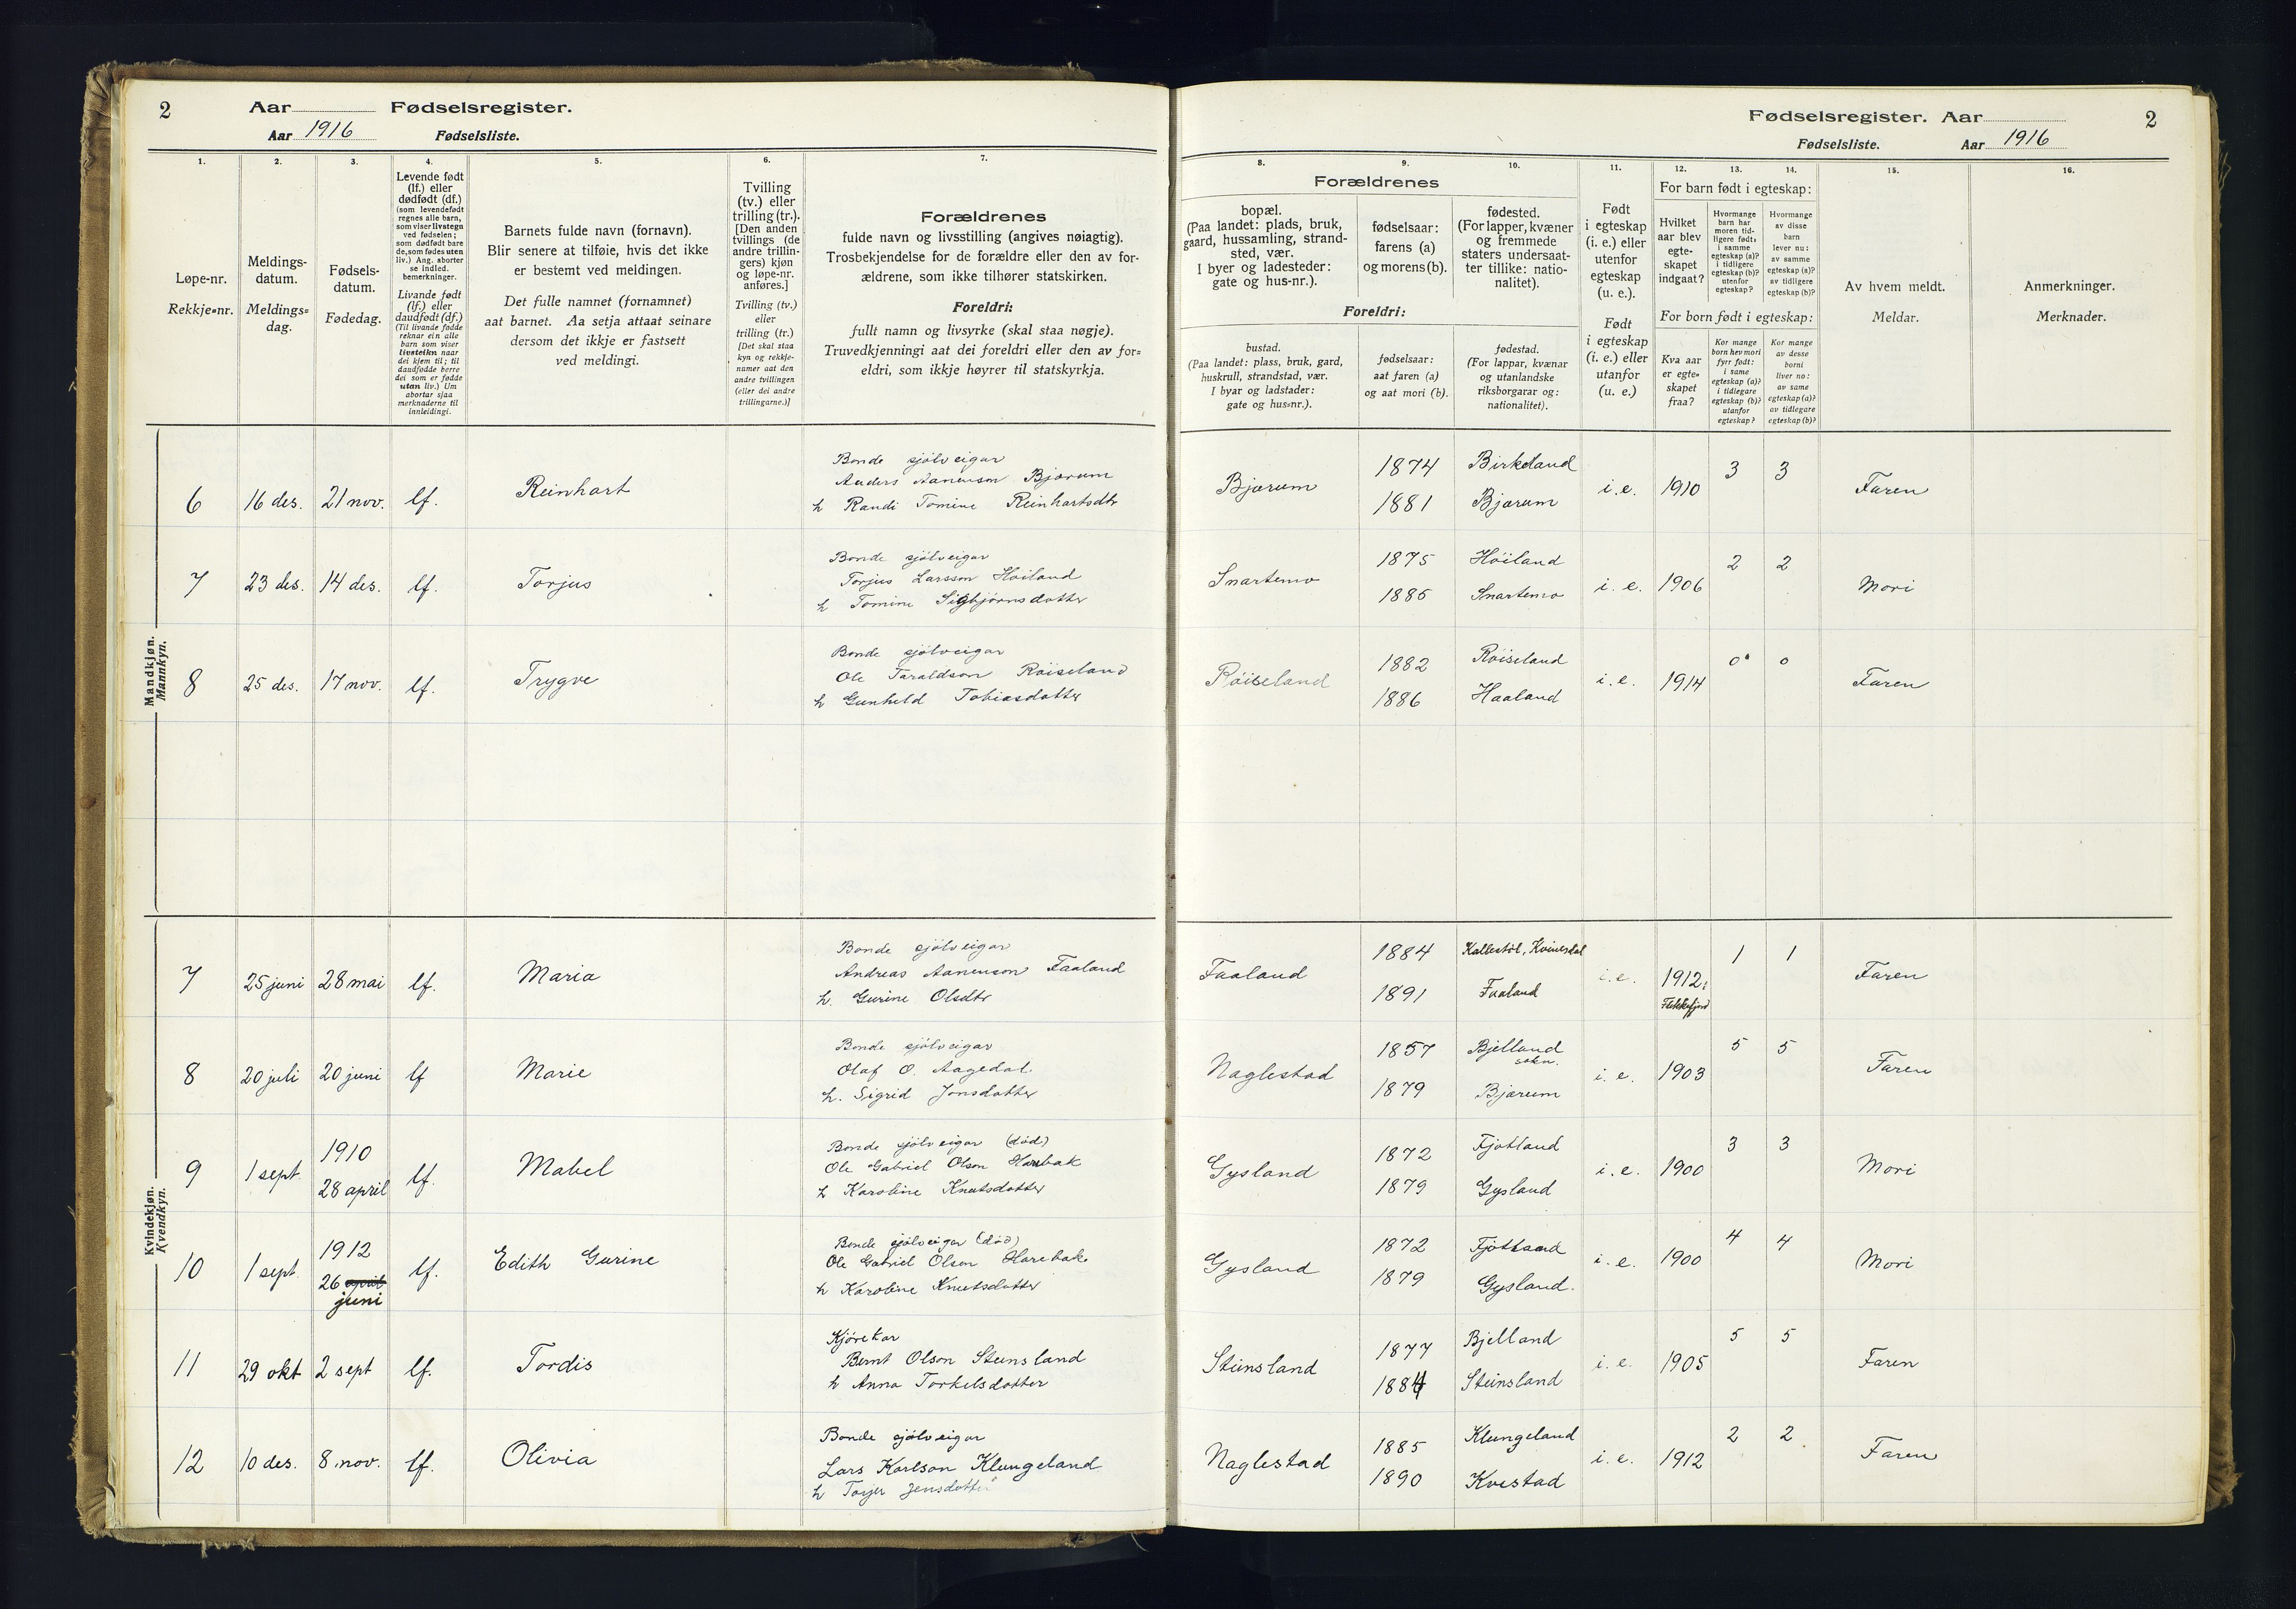 2 Aar Fødselsregister.
Aar 1916 Fødselsliste.
Fødselsregister. Aar 2
Fødselsliste. Aar 1916
1. 2. 3. 4. 5. 6. 7.
Løpe-nr.
Rekkje=nr.
Meldings-
datum.
Meldings=
dag.
Fødsels-
datum.
Fødedag.
Levende født
(lf.) eller
dødfødt (df.)
(som levendefødt
regnes alle barn,
som viser livstegn
ved fødselen;
som dødfødt bare
de, som fødes uten
liv.) Ang. aborter
se indled.
bemerkninger.
Livande født
(lf.) eller
daudfødt (df.)
(Til livande fødde
reknar ein alle
barn som viser
livsteikn naar
dei kjem til; til
daudfødde berre
dei som er fødde
utan liv.) Um
abortar sjaa
merknaderne til
innleidingi.
Barnets fulde navn (fornavn).
Blir senere at tilføie, hvis det ikke
er bestemt ved meldingen.
Det fulle namnet (fornamnet)
aat barnet. Aa setja attaat seinare
dersom det ikkje er fastsett
ved meldingi.
Tvilling
(tv.) eller
trilling (tr.).
[Den anden
tvillings (de
andre trillin-
gers) kjøn
og løpe-nr.
anføres.]
Tvilling (tv.)
eller
trilling (tr.)
[Det skal staa
kyn og rekkje-
namer aat den
andre tvillingen
(eller dei andre
trillingarne.)]
Forældrenes
fulde navn og livsstilling (angives nøiagtig).
Trosbekjendelse for de forældre eller den av for-
ældrene, som ikke tilhører statskirken.
Foreldri:
fullt namn og livsyrke (skal staa nøgje).
Truvedkjenningi aat dei foreldri eller den av for=
eldri, som ikkje høyrer til statskyrkja.
8. 9. 10. 11. 12. 13. 14. 15. 16.
Forældrenes
bopæl.
(Paa landet: plads, bruk,
gaard, hussamling, strand-
sted, vær.
I byer og ladesteder:
gate og hus-nr.).
fødselsaar:
farens (a)
og morens (b).
fødested.
(For lapper, kvæner
og fremmede
staters undersaat-
ter tillike: natio-
nalitet).
Foreldri:
bustad.
(Paa landet: plass, bruk, gard,
huskrull, strandstad, vær.
I byar og ladstader:
gate og hus=nr.).
fødselsaar:
aat faren (a)
og aat mori (b).
fødestad.
(For lappar, kvænar
og utanlandske
riksborgarar og:
nationalitet).
Født
i egteskap
(i. e.) eller
utenfor
egteskap
(u. e.).
Født
i egteskap
(i. e.) eller
utanfor
(u. e.)
For barn født i egteskap:
Hvilket
aar blev
egte-
skapet
indgaat?
Hvormange
barn har
moren tid-
ligere født:
i samme
egteskap (a)?
i tidligere
egteskap (b)?
utenfor
egteskap?
Hvormange
av disse
barn
lever nu:
av samme
egteskap (a)?
av tidligere
egteskap (b)?
For born født i egteskap:
Kva aar
er egte=
skapet
fraa?
Kor mange
born hev mori
fyrr født:
i same
egteskap (a)?
i tidlegare
egteskap (b)?
utanfor
egteskap?
Kor mange
av desse
borni
liver no:
av same
egteskap (a)?
av tidlegare
egteskap (b)?
Av hvem meldt.
Meldar.
Anmerkninger.
Merknader.
Mandkjøn.
Mannkyn.
6 16 des. 21 nov. lf. Reinhart
Bonde sjölveigar
Anders Aanenson Bjærum
h Randi Tomine Reinhartsdtr
Bjærum 1874 Birkeland
1881 Bjærum
i. e. 1910 3 3 Faren
7 23 des. 14 des. lf. Torjus
Bonde sjölveigar
Torjus Larsson Höiland
h Tomine Sigbjörnsdotter
Snartemo 1875 Höiland
1885 Snartemo
i. e. 1906 2 2 Mori
8 25 des. 17 nov. lf. Trygve
Bonde sjölveigar
Ole Taraldson Röiseland
h Gunhild Tobiasdotter
Röiseland 1882 Röiseland
1886 Haaland
i. e. 1914 0 0 Faren
Kvindekjøn.
Kvendkyn.
7 25 juni 28 mai lf. Maria
Bonde sjölveigar
Andreas Aanenson Faaland
h. Gurine Olsdtr
Faaland 1884 Kallestöl, Kvinesdal
1891 Faaland
i. e. 1912 i
Flekkefjord
1 1 Faren
8 20 juli 20 juni lf Marie
Bonde sjölveigar
Olaf O. Aagedal
h. Sigrid Jonsdotter
Naglestad 1857 Bjelland
sokn.
1879 Bjærum
i. e. 1903 5 5 Faren
9 1 sept. 1910
28 april lf. Mabel
Bonde sjölveigar (död)
Ole Gabriel Olson Harebak
h Karoline Knutsdotter
Gysland 1872 Fjotland
1879 Gysland
i. e. 1900 3 3 Mori
10 1 sept. 1912
26 april
juni
lf. Edith Gurine
Bonde sjölveigar (död)
Ole Gabriel Olson Harebak
h Karoline Knutsdotter
Gysland 1872 Fjotland
1879 Gysland.
i. e. 1900 4 4 Mori
11 29 okt 2 sept lf. Tordis
Kjörekar
Bernt Olson Steinsland
h Anna Torkelsdotter
Steinsland 1877 Bjelland
1884 Steinsland
i. e. 1905 5 5 Faren
12 10 des. 8 nov. lf. Olivia
Bonde sjölveigar
Lars Karlson Klungeland
h Jensdotter
Naglestad 1885 Klungeland
1890 Kvestad
i. e. 1912 2 2 Faren